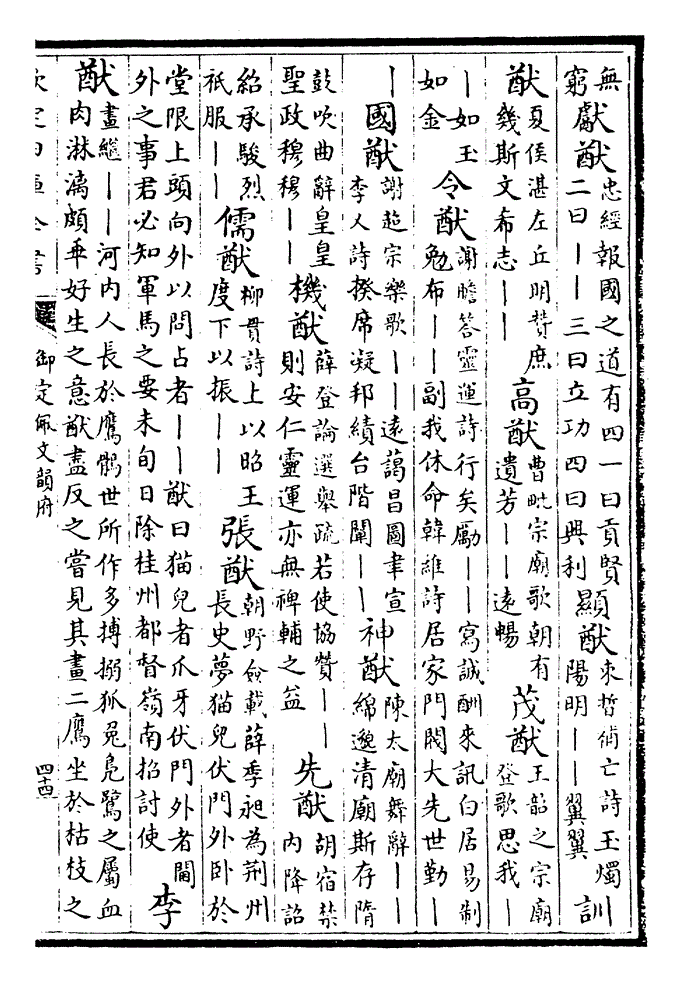 無窮獻猷忠經報國之道有四一曰貢賢二曰——三曰立功四曰興利顯猷束晳補亡詩玉燭陽明——翼翼訓
猷夏侯湛左丘明贊庶幾斯文希志——高猷曹毗宗廟歌朝有遺芳——遠暢茂猷王韶之宗廟登歌思我—
—如玉如金令猷謝瞻答靈運詩行矣勵——寫誠酬來訊白居易制勉布——副我休命韓維詩居家門閥大先世勤—
—國猷謝超宗樂歌——遠藹昌圖聿宣李乂詩揆席凝邦績台階闡——神猷陳太廟舞辭——綿邈清廟斯存隋
鼓吹曲辭皇皇聖政穆穆——機猷薛登論選舉疏若使協贊——則安仁靈運亦無裨輔之益先猷胡宿禁内降詔
紹承駿烈祇服——儒猷柳貫詩上以昭王度下以振——張猷朝野僉載薛季昶為荆州長史夢猫兒伏門外卧於
堂限上頭向外以問占者——猷曰猫兒者爪牙伏門外者閫外之事君必知軍馬之要未旬日除桂州都督嶺南招討使李
猷畫繼——河内人長於鷹鶻世所作多搏搦狐兔鳧鷺之屬血肉淋漓頗乖好生之意猷盡反之嘗見其畫二鷹坐於枯枝之
欽定四庫全書
御定佩文韻府
四十四